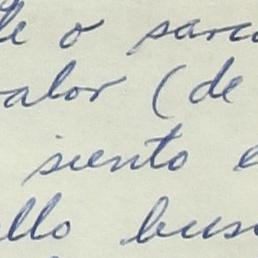 le o sarc
valor (de
siento e
ello bus